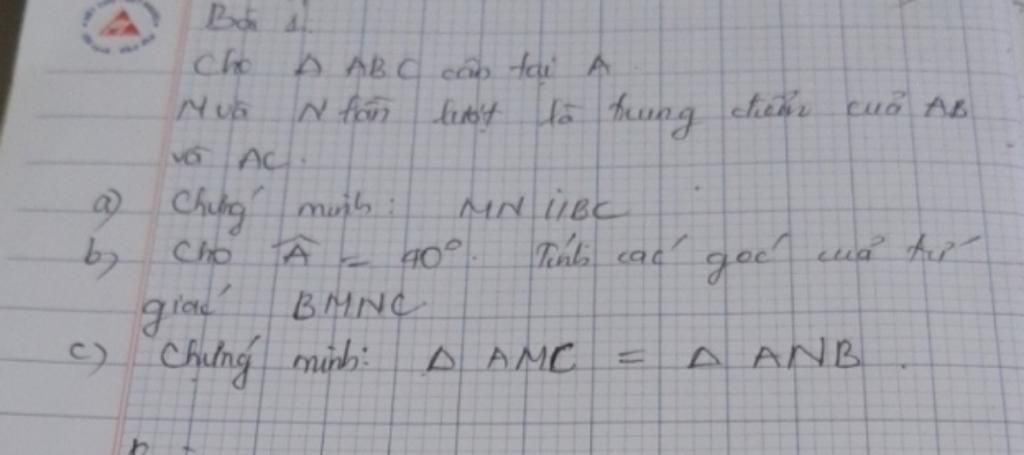 Bài 1.
Cho Δ ABC cân tại A
M và N lần lượt là trung điểm của AB
và AC.
a) Chứng minh: MN // BC
b) Cho Â = 40°. Tính các góc của tứ
giác BMNC
c) Chứng minh: Δ AMC = Δ ANB.